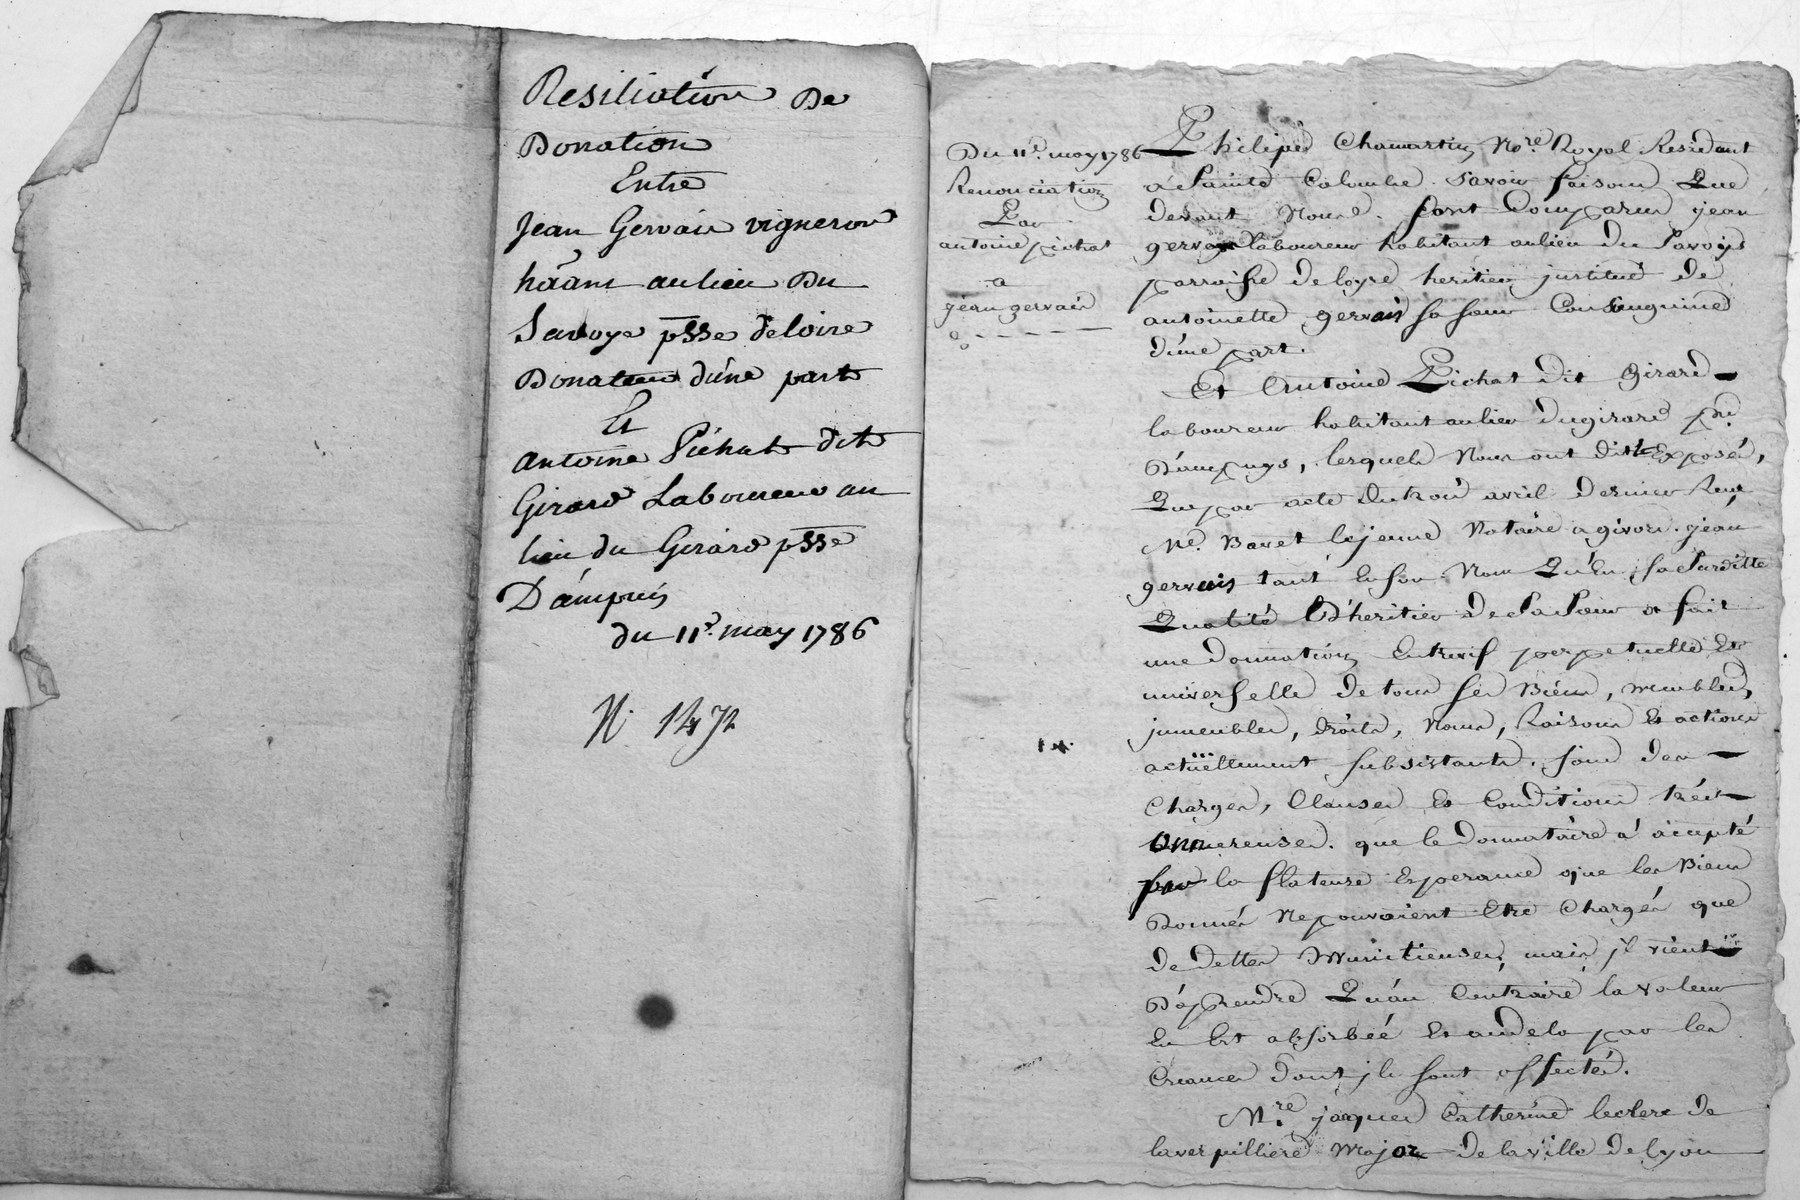 Resiliation De
Donation
Entre
Jean Gervais vigneron
hãant au lieu Du
Savoye psse de loire
Donateur d'une part
Et
antoine Pichat dit
Girard Laboureur au
lieu du Girard psse
D'ampuis
du 11e. may 1786
N. 1472
Du 11e. may 1786
Renonciation
Par
antoine pichat
a
jean gervais
Philipe Chamartin Nore. Royal Residant
a Sainte Colombe. Savoir faisons Que
devant Nous. sont Comparus jean
gervais laboureur habitant au lieu du Savoys
parroisse de loyre heritier jnstitué de
antoinette gervais sa sœur Consanguine
d'une part.
Et Antoine Pichat dit Girard
laboureur habitant au lieu du girard
D'ampuys, lesquels Nous ont dit & Exposés,
Que par acte du trois avril dernier Reçu
Me. Baret lejeune Notaire a givors. jean
gervais tant En son Nom Qu'En sa Susditte
Qualité D'heritier de Sa Sœur a fait
une donnation Entrevif perpetuelle Et
universelle de tous ses Biens, meubles,
jmmeubles, droits, Noms, Raisons Et actions
actuëllement subsistants. sous des
Charges, Clauses Et Conditions trés
Onnereuses. que le donnataire a accepté
par la flateuse Esperance que les Biens
Donnés Ne pouvoient Etre Chargés que
de dettes Minutieuses, mais jl vient
D'apprendre Qu'au Contraire la valeur
En Est absorbéé Et audela par les
Creances dont jls sont affectés.
Mre. jacques Catherine leclerc de
laverpilliere Major de la ville de lyon